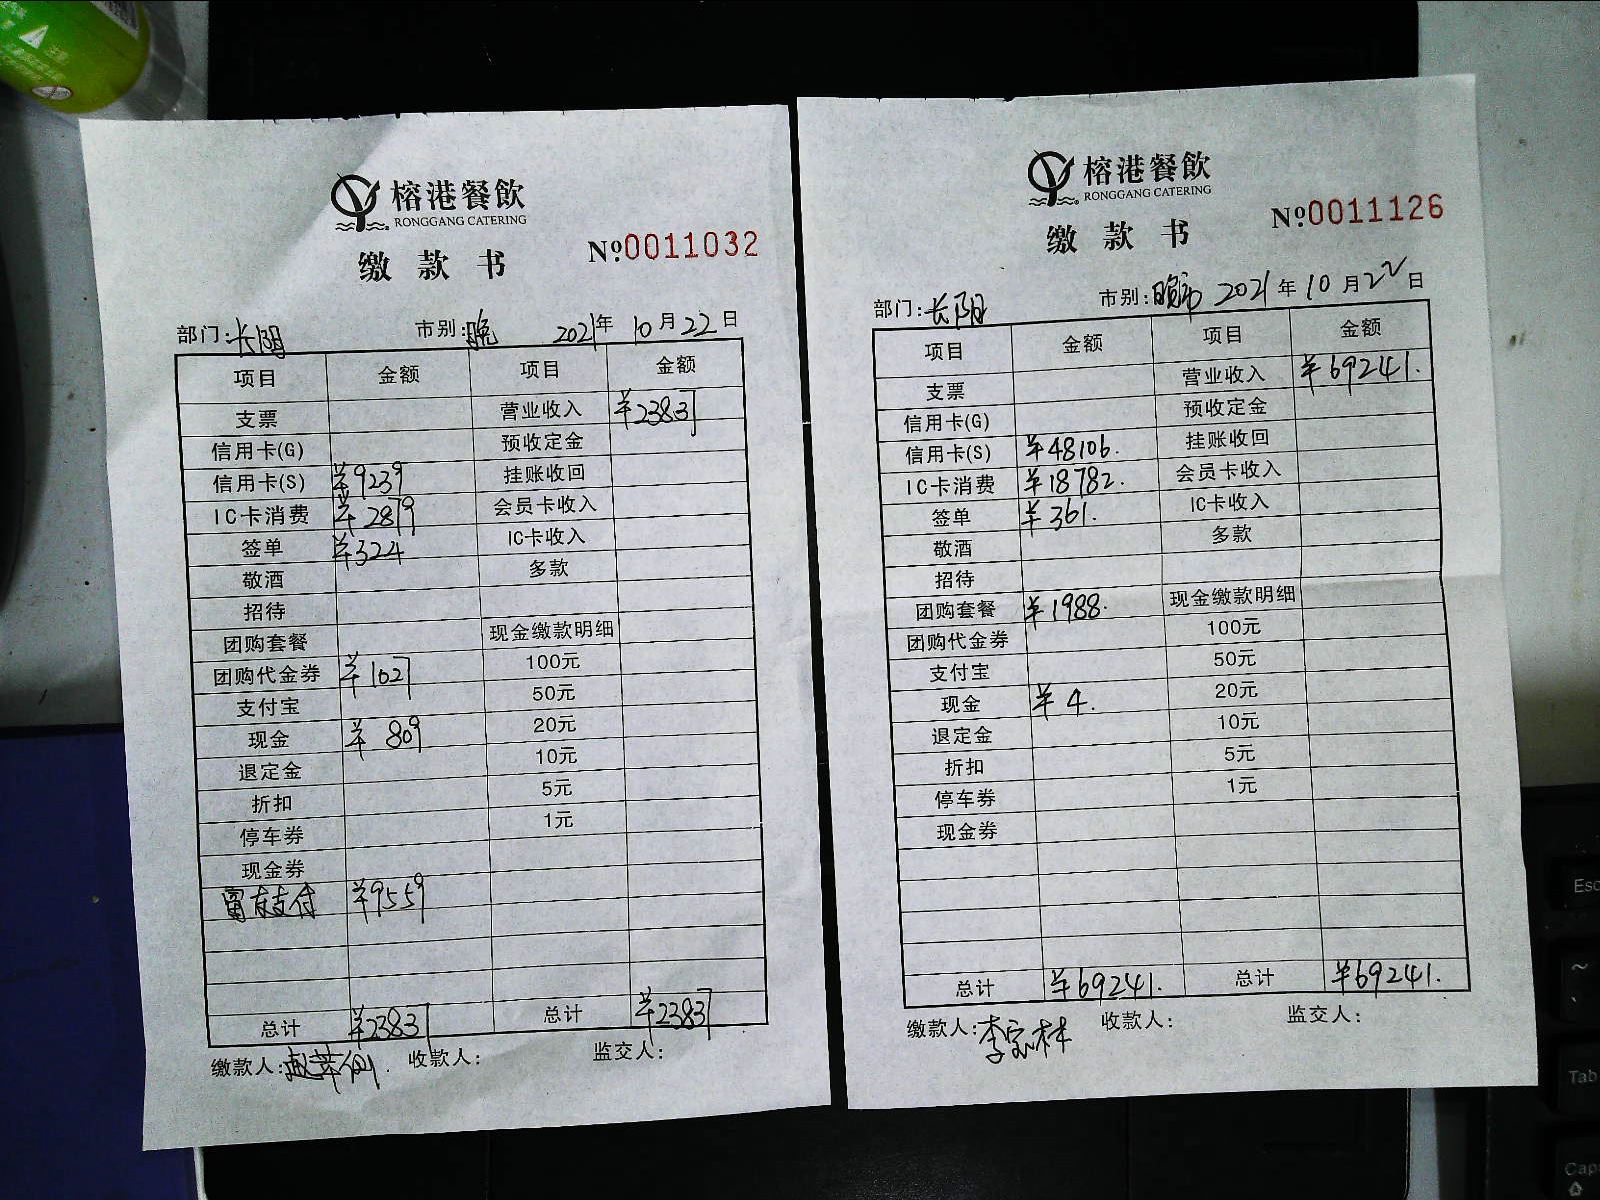 榕港餐飲
RONGGANG CATERING
缴款书
№0011032
部门:长阳 市别:晚 2021年10月22日
项目 金额 项目 金额
支票 营业收入 ¥23837
信用卡(G) 预收定金
信用卡(S) ¥9239 挂账收回
IC卡消费 ¥2879 会员卡收入
签单 ¥324 IC卡收入
敬酒 多款
招待
团购套餐 现金缴款明细
团购代金券 ¥1027 100元
支付宝 50元
现金 ¥809 20元
退定金 10元
折扣 5元
停车券 1元
现金券
富友支付 ¥9559
总计 ¥23837 总计 ¥23837
缴款人: 收款人: 监交人:
榕港餐飲
RONGGANG CATERING
缴款书
№0011126
部门:长阳 市别:晚市 2021年10月22日
项目 金额 项目 金额
支票 营业收入 ¥69241.
信用卡(G) 预收定金
信用卡(S) ¥48106. 挂账收回
IC卡消费 ¥18782. 会员卡收入
签单 ¥361. IC卡收入
敬酒 多款
招待
团购套餐 ¥1988. 现金缴款明细
团购代金券 100元
支付宝 50元
现金 ¥4. 20元
退定金 10元
折扣 5元
停车券 1元
现金券
总计 ¥69241. 总计 ¥69241.
缴款人:李宗林 收款人: 监交人:
Esc
~
Tab
Caps